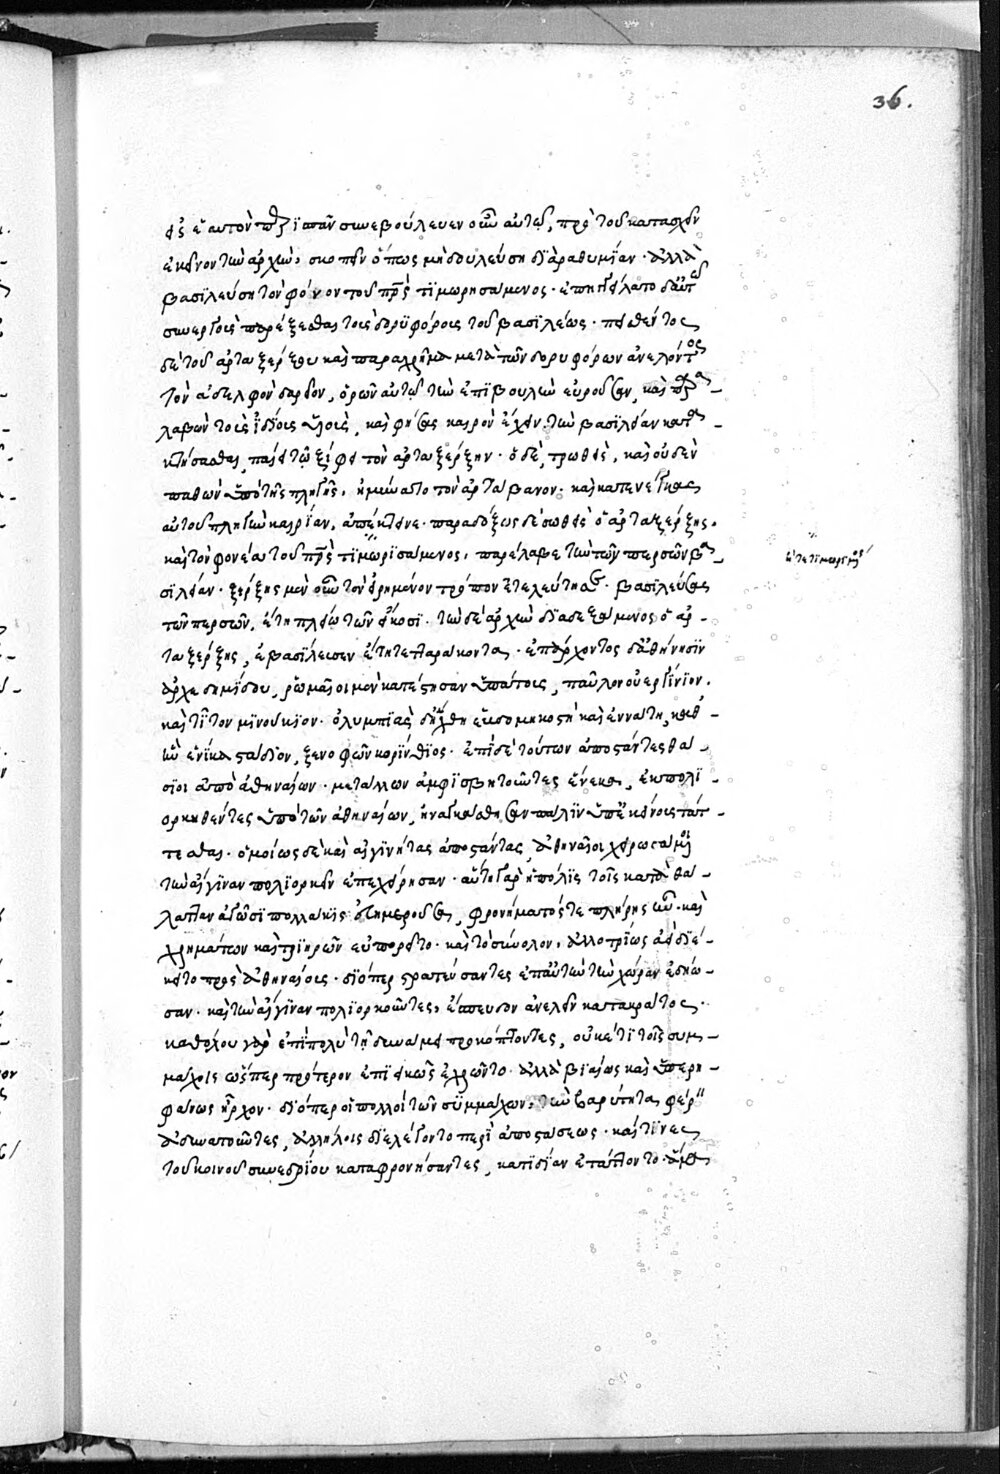 36.
εἰς ἑαυτὸν περιϊστᾶν συνεβούλευεν οὖν αὐτῷ, πρὸ τοῦ κατασχεῖν
ἐκεῖνον τὴν ἀρχὴν, σκοπεῖν ὅπως μὴ δουλεύση διὰ ραθυμίαν. ἀλλὰ
βασιλεύση τὸν φόνον τοῦ πατρὸς τιμωρησάμενος. ἐπηγγείλατο δ' αὐτῷ
συνεργοὺς παρέξεσθαι τοὺς δορυφόρους τοῦ βασιλέως. πεισθέντος
δὲ τοῦ ἀρταξέρξου καὶ παραχρῆμα μετὰ τῶν δορυφόρων ἀνελόντος
τὸν ἀδελφὸν δαρεῖον, ὁρῶν αὐτῷ τὴν ἐπιβουλὴν εὐροοῦσαν, καὶ παρα-
λαβὼν τοὺς ἰδίους υἱοὺς, καὶ φήσας καιρὸν ἔχειν τὴν βασιλείαν κατα-
κτήσασθαι, παίει τῷ ξίφει τὸν ἀρταξέρξην. ὁ δὲ, τρωθεὶς, καὶ οὐδὲν
παθὼν ὑπὸ τῆς πληγῆς, ἠμύνατο τὸν ἀρτάβανον. καὶ κατενέγκας
αὐτοῦ πληγὴν καιρίαν, ἀπέκτεινε. παραδόξως δὲ σωθεὶς ὁ ἀρταξέρξης.
καὶ τὸν φονέα τοῦ πατρὸς τιμωρισάμενος, παρέλαβε τὴν τῶν περσῶν βα-
σιλείαν. ξέρξης μὲν οὖν τὸν εἰρημένον τρόπον ἐτελεύτησε. βασιλεύσας
τῶν περσῶν, ἔτη πλείω τῶν εἴκοσι. τὴν δὲ ἀρχὴν διαδεξάμενος ὁ ἀρ-
ταξέρξης, ἐβασίλευσεν ἔτη τετταράκοντα. ἐπ' ἄρχοντος δ' ἀθήνησιν
ἀρχεδημίδου, ῥωμαῖοι μὲν κατέστησαν ὑπάτους, παῦλον οὐεργίνιον.
καὶ τίτον μινούκιον. ὀλυμπιὰς δ' ἤχθη ἑβδομηκοστὴ καὶ ἐννάτη, καθ'
ἣν ἐνίκα στάδιον, ξενοφῶν κορίνθιος. ἐπὶ δὲ τούτων ἀποστάντες θά-
σιοι ἀπὸ ἀθηναίων. μετάλλων ἀμφισβητοῦντες ἕνεκα, ἐκπολι-
ορκηθέντες ὑπὸ τῶν ἀθηναίων, ἠναγκάσθησαν πάλιν ὑπ' ἐκείνοις τάτ-
τεσθαι. ὁμοίως δὲ καὶ αἰγινήτας ἀποστάντας, ἀθηναῖοι χειρωσάμενοι
τὴν αἴγιναν πολιορκεῖν ἐπεχείρησαν. αὕτη γὰρ ἡ πόλις τοῖς κατὰ θά-
λατταν ἀγῶσι πολλάκις εὐημεροῦσα, φρονήματός τε πλήρης ἦν. καὶ
χρημάτων καὶ τριηρῶν εὐπορεῖτο. καὶ τὸ σύνολον, ἀλλοτρίως ἀεὶ διέ-
κειτο πρὸς ἀθηναίους. διόπερ στρατεύσαντες ἐπ' αὐτὴν τὴν χώραν ἐδήω-
σαν. καὶ τὴν αἴγιναν πολιορκοῦντες, ἔσπευδον ἀνελεῖν κατακράτος.
καθόλου γὰρ ἐπιπολὺ τῆ δυνάμει προκόπτοντες, οὐκέτι τοῖς συμ-
μάχοις ὥσπερ πρότερον ἐπιεικῶς ἐχρῶντο. ἀλλὰ βιαίως καὶ ὑπερη-
φάνως ἦρχον. διόπερ οἱ πολλοὶ τῶν συμμάχων, τὴν βαρύτητα φέρειν
ἀδυνατοῦντες, ἀλλήλοις διελέγοντο περὶ ἀποστάσεως. καὶ τινες
τοῦ κοινοῦ συνεδρίου καταφρονήσαντες, κατιδίαν ἐτάττοντο. ἅμα